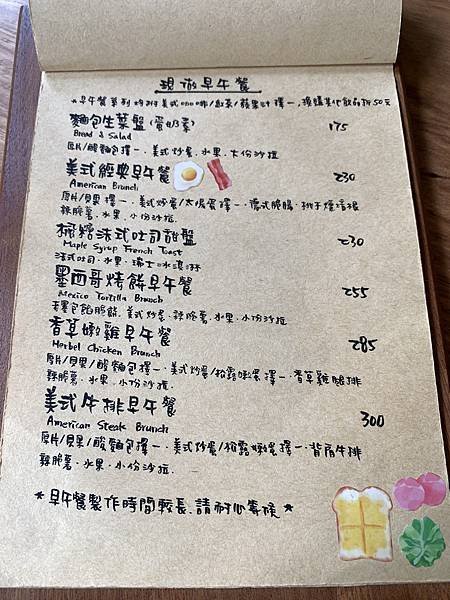 現做早午餐
*早午餐系列均附美式coffee/紅茶/蘋果汁 擇一,換購其他飲品折50元
麵包生菜盤(蛋奶素) 175
Bread & Salad
厚片/酸麵包擇一.美式炒蛋.水果.大份沙拉
美式經典早午餐 230
American Brunch
厚片/貝果擇一.美式炒蛋/太陽蛋擇一.德式脆腸.
辣脆薯.水果.小份沙拉
楓糖法式吐司甜盤 230
Maple Syrup French Toast
法式吐司.水果.瑞士冰淇淋
墨西哥烤餅早午餐 255
Mexico Tortilla Brunch
美式炒蛋.辣脆薯.水果.小份沙拉
香草嫩雞早午餐 285
Herbel Chicken Brunch
厚片/貝果/酸麵包擇一.美式炒蛋/招露嫩蛋擇一.香草雞腿排
辣脆薯.水果.小份沙拉.
美式牛排早午餐 300
American Steak Brunch
厚片/貝果/酸麵包擇一.美式炒蛋/招露嫩蛋擇一.背肩牛排
辣脆薯.水果.小份沙拉.
*早午餐製作時間較長.請耐心等候*